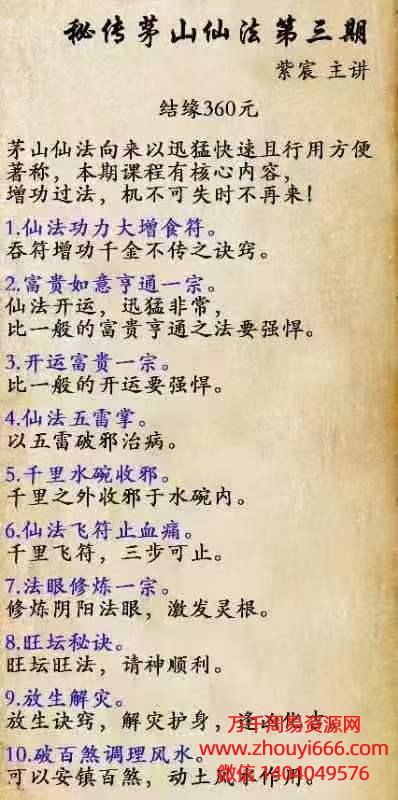 秘传茅山仙法第三期
紫宸 主讲
结缘360元
茅山仙法向来以迅猛快速且行用方便
著称，本期课程有核心内容，
增功过法，机不可失时不再来！
1.仙法功力大增食符。
吞符增功千金不传之诀窍。
2.富贵如意亨通一宗。
仙法开运，迅猛非常，
比一般的富贵亨通之法要强悍。
3.开运富贵一宗。
比一般的开运要强悍。
4.仙法五雷掌。
以五雷破邪治病。
5.千里水碗收邪。
千里之外收邪于水碗内。
6.仙法飞符止血痛。
千里飞符，三步可止。
7.法眼修炼一宗。
修炼阴阳法眼，激发灵根。
8.旺坛秘诀。
旺坛旺法，请神顺利。
9.放生解灾。
放生诀窍，解灾护身，逢凶化吉。
万千周易资源网
10.破百煞调理风水。
www.zhouyi666.com
可以安镇百煞，动土风水作用。
微信1404049576